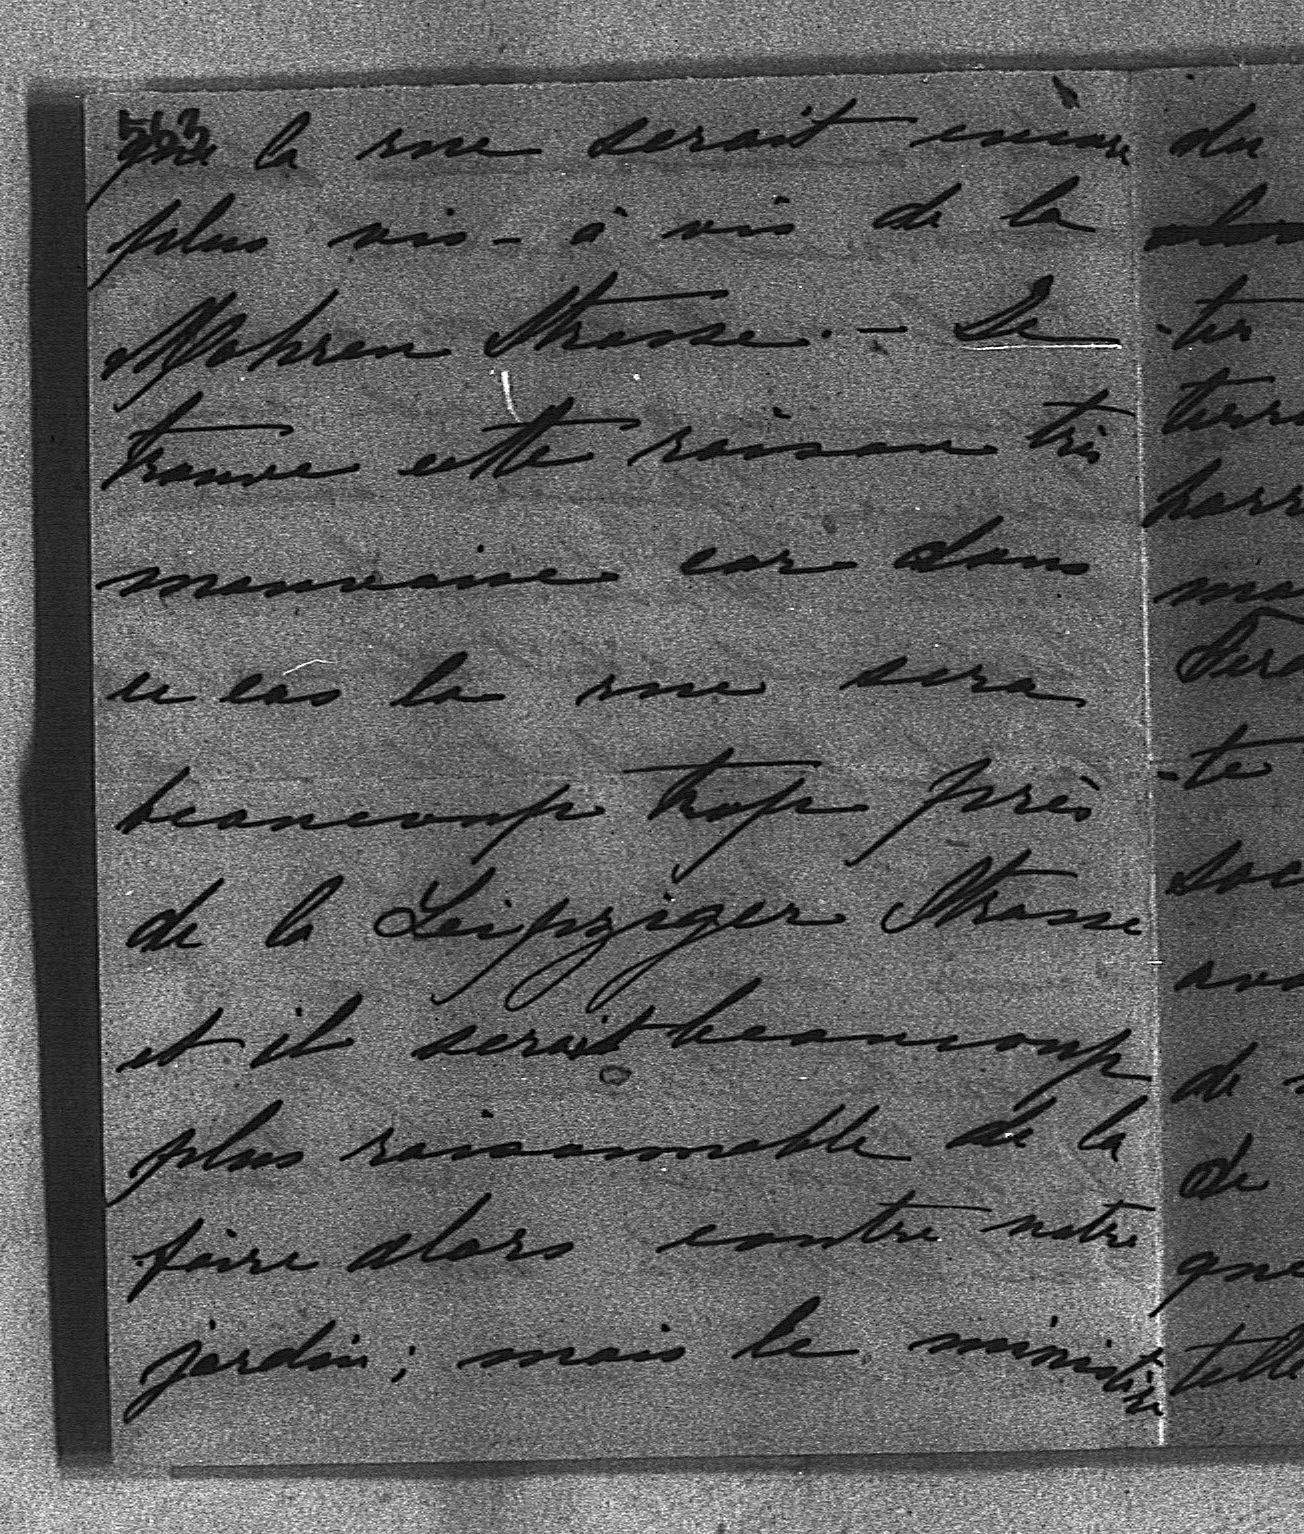 563
que la rue serait encore
plus vis-à vis de la
Mohren Strasse. – Je
trouve cette raison très
mauvaise car dans
ce cas la rue sera
beaucoup trop près
de la Leipziger Strasse
et il serait beaucoup
plus raisonnable de la
faire alors contre notre
jardin; mais le ministère
du
-ter
-te
de
de
que